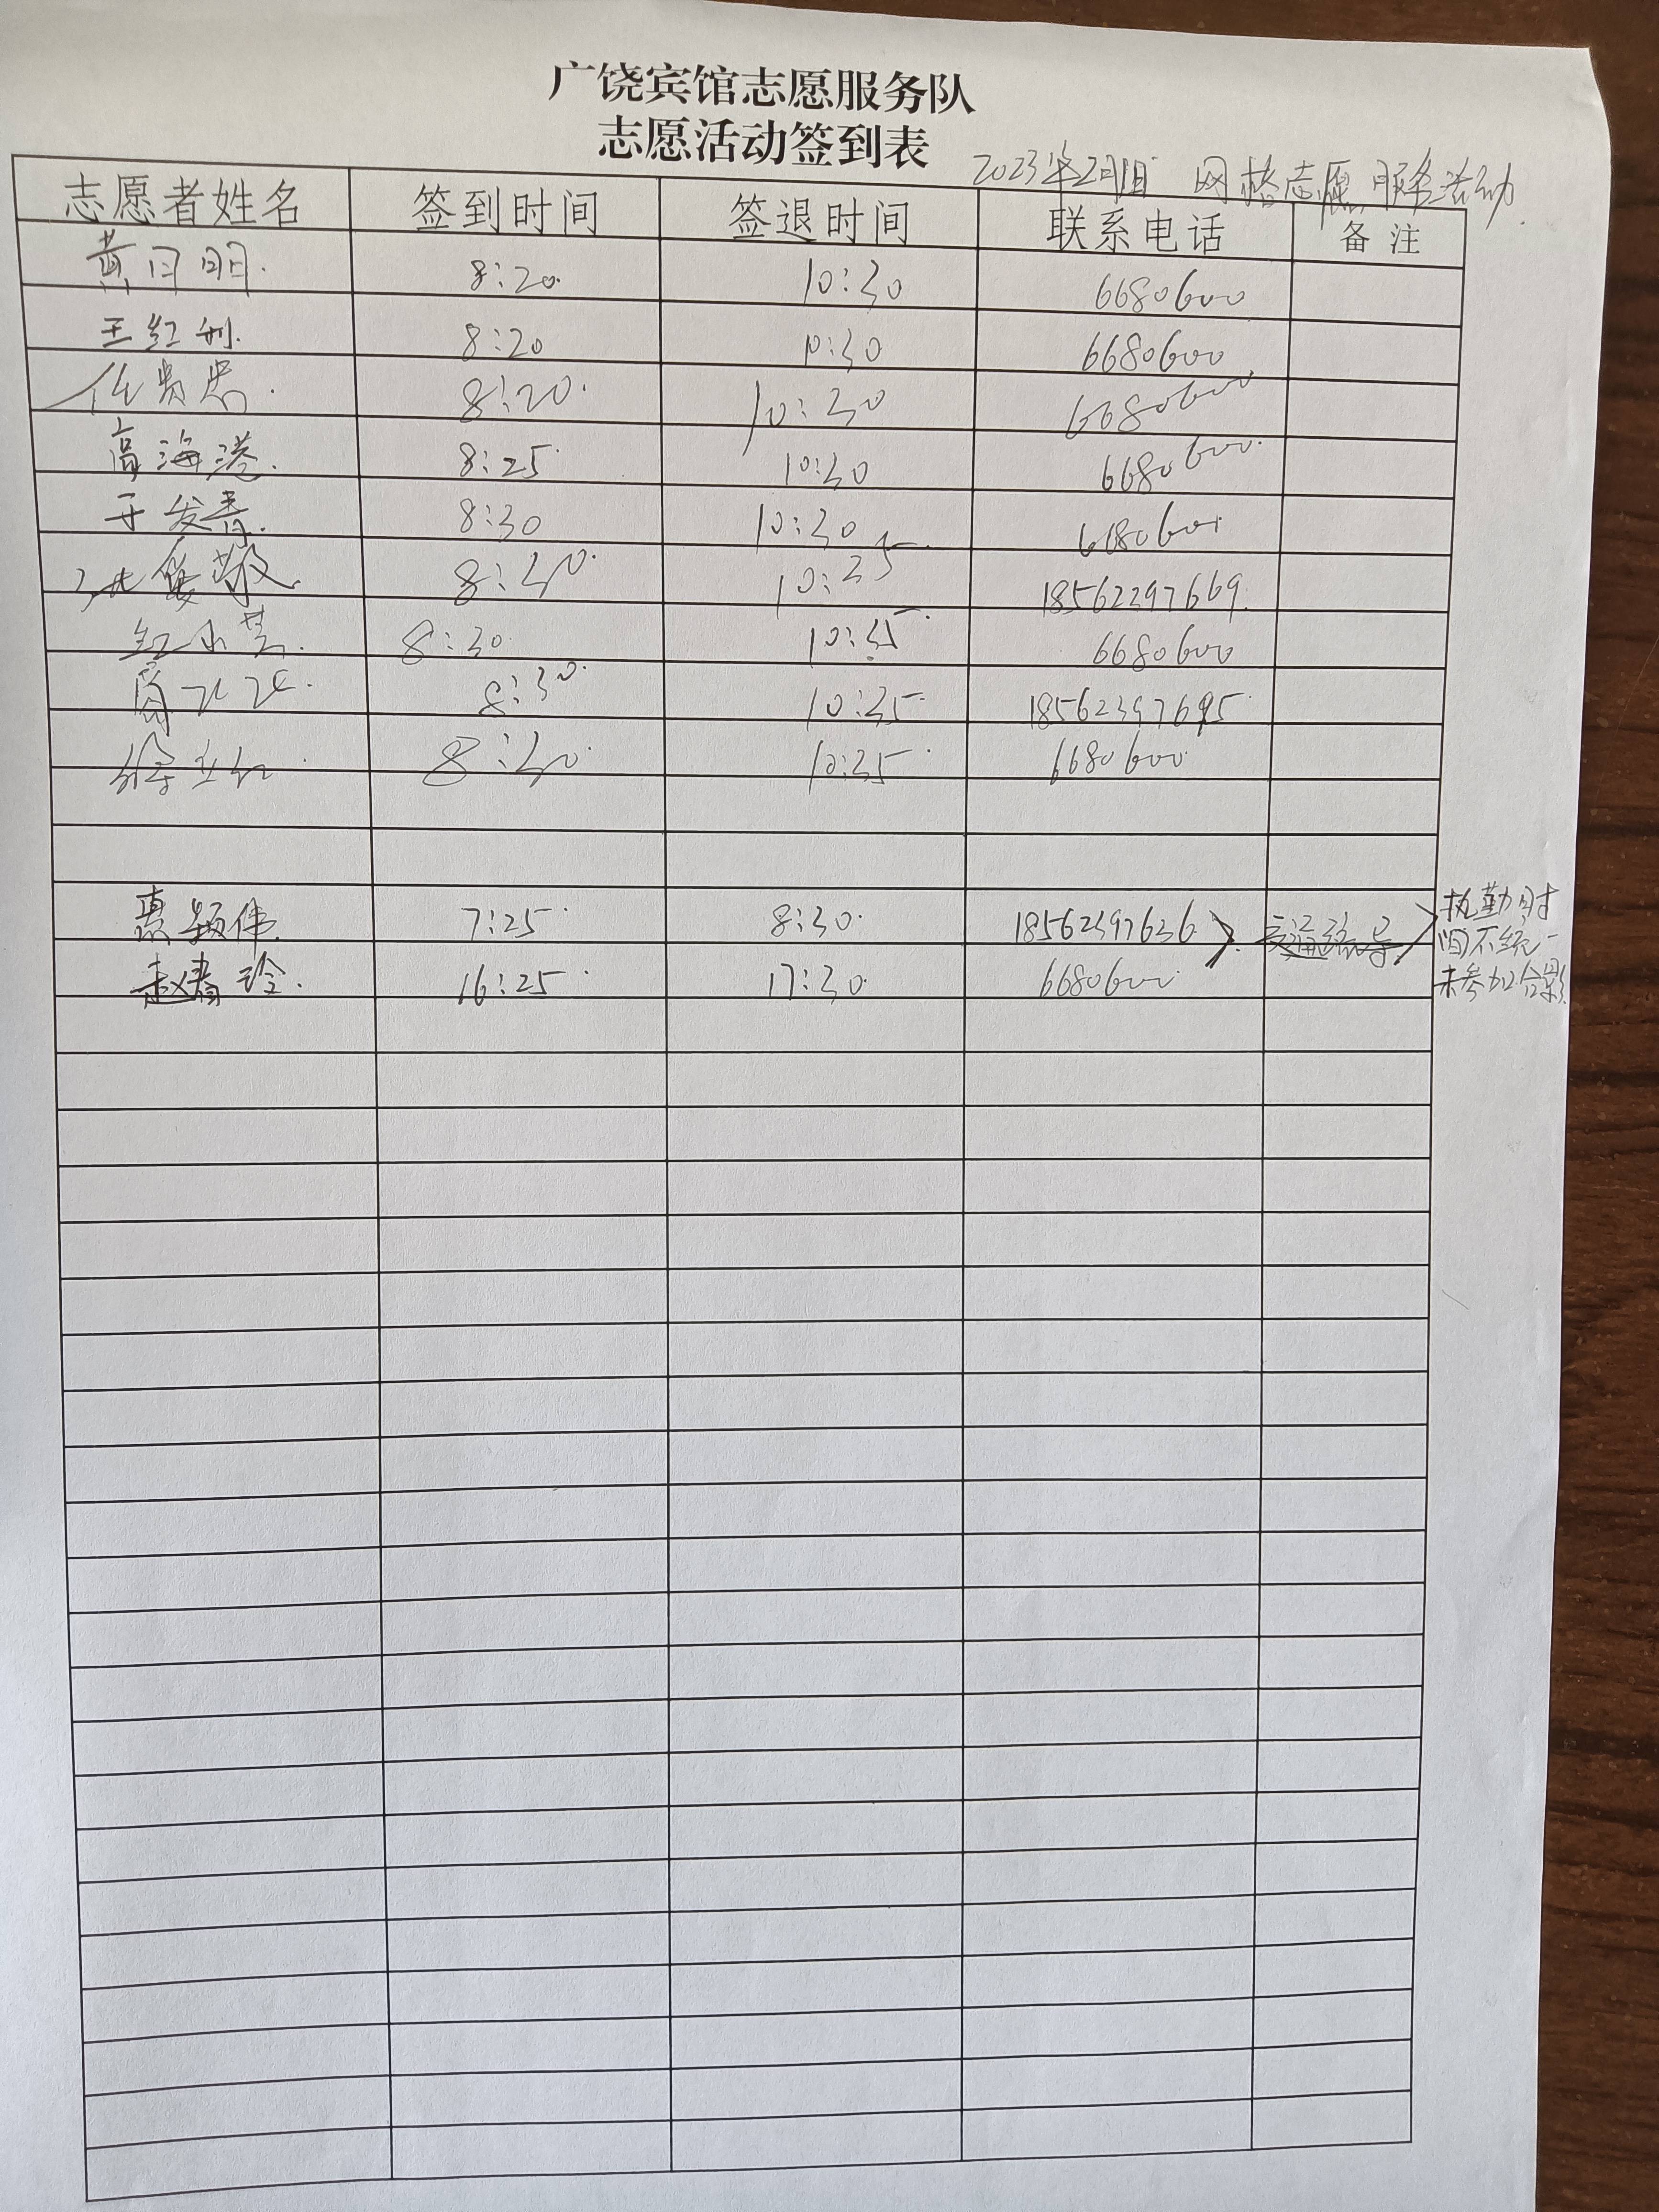 广饶宾馆志愿服务队
志愿活动签到表
2023年2月1日 网格志愿服务活动
志愿者姓名 签到时间 签退时间 联系电话 备注
黄日明 8:20 10:30 6680600
王红利 8:20 10:30 6680600
任贵忠 8:20 10:30 6680600
高海港 8:25 10:30 6680600
于发青 8:30 10:30 6680600
8:30 10:35 18562397669
8:30 10:35 6680600
8:30 10:35 18562397695
徐立红 8:30 10:35 6680600
惠颖伟 7:25 8:30 18562397636 交通疏导 执勤时
间不统一
赵春玲 16:25 17:30 6680600 未参加合影